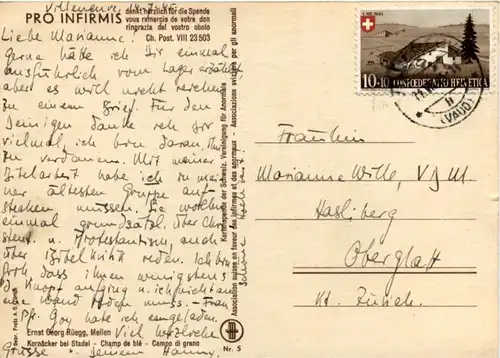 Villeneuve, 14.7.45.
PRO INFIRMIS
dankt herzlich für die Spende
vous remercie de votre don
ringrazia del vostro obolo
Ch. Post. VIII 23 503
Liebe Marianne!
Gerne hätte ich Dir einmal
ausführlich vom Lager erzählt,
aber es will nicht reichen
zu einem Brief. Für den
Deinigen danke ich Dir
vielmal, ich bin daran, ihn
zu verdauen. Mit meiner
Bibelarbeit habe ich in mei-
ner ältesten Gruppe auf-
stecken müssen. Sie wollen
einmal grundsätzl. über
u. Protestantism, auch
über Bibelkritik reden. Ich bin
froh dass ihnen wenigstens
d. Knopf aufging u. ich nicht an
eine Wand reden muss. - Frau
Pfr. hat mich eingeladen.
Viel herzliche
Grüsse Deinem Hanny.
Schöne
Kartenspende der Schweiz. Vereinigung für Anormale
Association suisse en faveur des infirmes et des anormaux - Associazione svizzera per gli anormali
Ernst Georg Rüegg, Meilen
Kornäcker bei Stadel - Champ de blé - Campo di grano
Nr. 5
1. VIII. 1945
10+10 CONFOEDERATIO HELVETICA
(VAUD)
Fräulein
Marianne Wille, VDM.
Hasliberg
Oberglatt
Kt. Zürich.